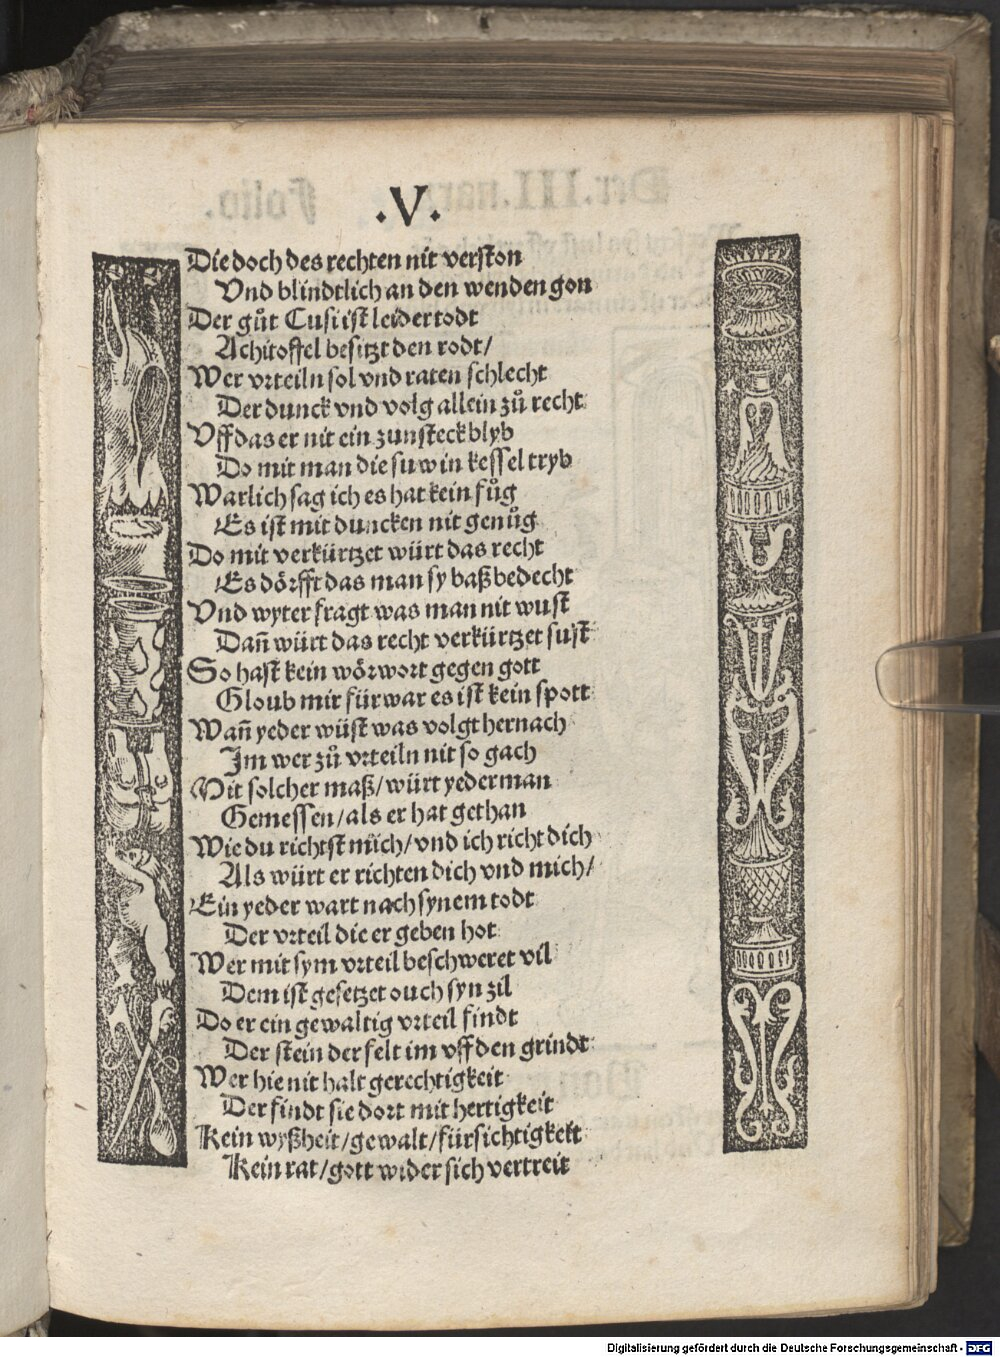 ·V·
Die doch des rechten nit verston
Vnd blindtlich an den wenden gon
Der gůt Cusi ist leider todt
Achitoffel besitzt den rodt/
Wer vrteiln sol vnd raten schlecht
Der dunck vnd volg allein zů recht
Vff das er nit ein zunsteck blyb
Do mit man die suw in kessel tryb
Warlich sag ich es hat kein fůg
Es ist mit duncken nit genůg
Do mit verkürtzet würt das recht
Es dörfft das man sy baß bedecht
Vnd wyter fragt was man nit wust
Dañ würt das recht verkürtzet sust
So hast kein wörwort gegen gott
Gloub mir fürwar es ist kein spott
Wañ yeder wüst was volgt hernach
Im wer zů vrteiln nit so gach
Mit solcher maß/ würt yederman
Gemessen/ als er hat gethan
Wie du richtst mich/ vnd ich richt dich
Als würt er richten dich vnd mich/
Ein yeder wart nach synem todt
Der vrteil die er geben hot
Wer mit sym vrteil beschweret vil
Dem ist gesetzet ouch syn zil
Do er ein gewaltig vrteil findt
Der stein der felt im vff den grindt
Wer hie nit halt gerechtigkeit
Der findt sie dort mit hertigkeit
Kein wyßheit/ gewalt/ fürsichtigkeit
Kein rat/ gott wider sich vertreit
Digitalisierung gefördert durch die Deutsche Forschungsgemeinschaft - DFG